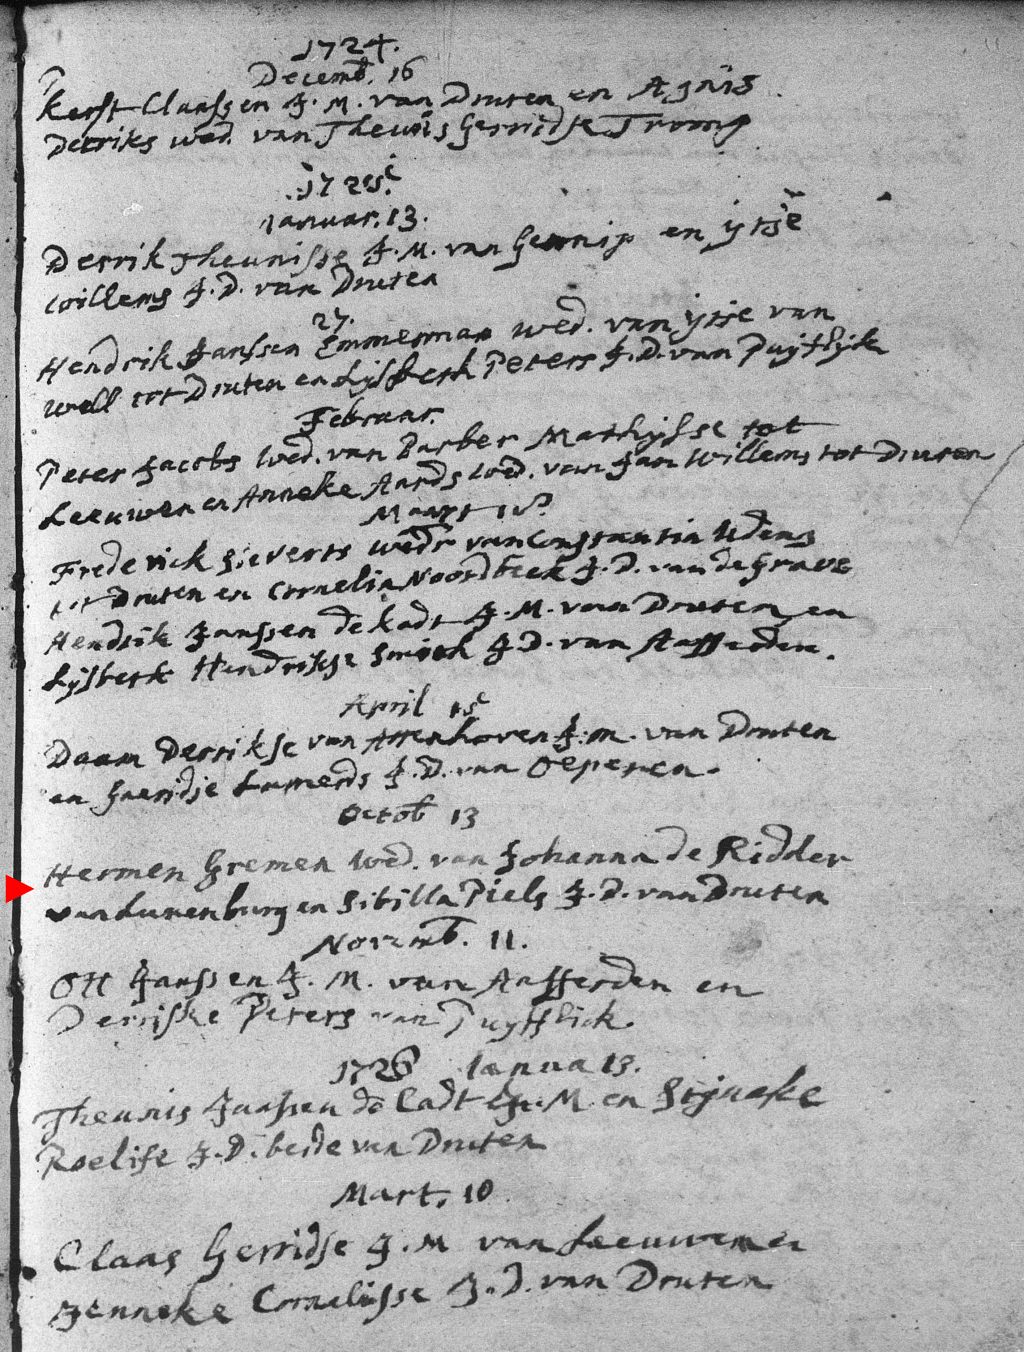 1724.
Decemb. 16
Kerst Claassen J. M. van Druten en Agnis
Derriks wed. van Theunis Gerridse Tromp
1725.
Januar. 13.
Derrik Theunisse J. M. van Gennip en ytje
Willems J. D. van Druten
27.
Hendrik Janssen Emmerman wed. van ytje van
well tot Druten en Lijsbeth Peters J. D. van Puyflyk
Februar.
Peter Jacobs Wed. van Barber Mathijsse tot
Leeuwen en Anneke Aards wed. van Jan Willems tot Druten
Maart 18
Frederick Sieverts wedr van Constantia Udens
tot Druten en Cornelia Noordbeek J. D. van de Grave
Hendrik Janssen de Kadt J. M. van Druten en
Lijsbeth Hendrikse Smith J D. van Aafferden.
April 15
Daam Derrikse van Attenhoven J: M. van Druten
en Geeridje Lamerds J. D. van Oeperen.
Octob 13
Hermen Gremen Wed. van Johanna de Ridder
van Lunenburg en Sibilla Piels J. D. van Druten
Novemb. 11.
Ott Janssen J. M. van Aafferden en
Derriske Peters van Puyfflick.
1726 Janua 13.
Theunis Janssen de Cadt J. M en Stijneke
Roelife J. D. beide van Druten
Mart. 10
Claas Gerridse J. M van Leeuwen en
Jenneke Cornelisse J. D. van Druten